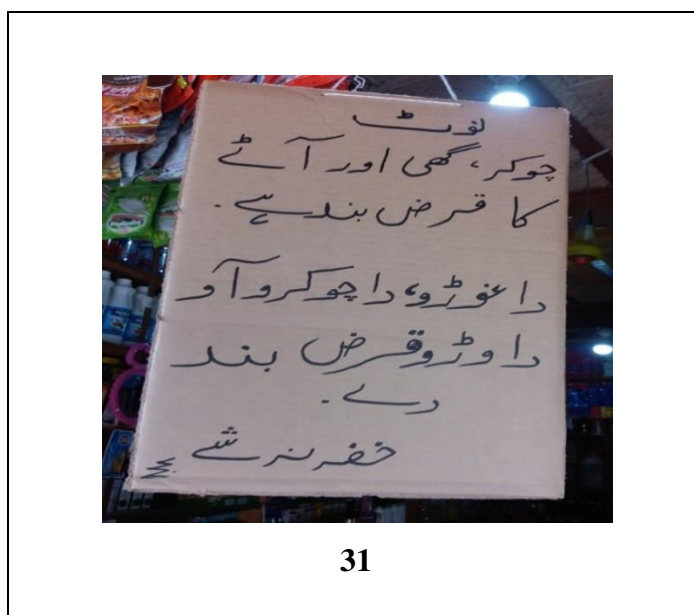 نوٹ
چوکر، گھی اور آٹے
کا قرض بند ہے۔
دا غوڑو، دا چوکرو آو
دا وڑو قرض بند
دے۔
خفہ نہ شے
31